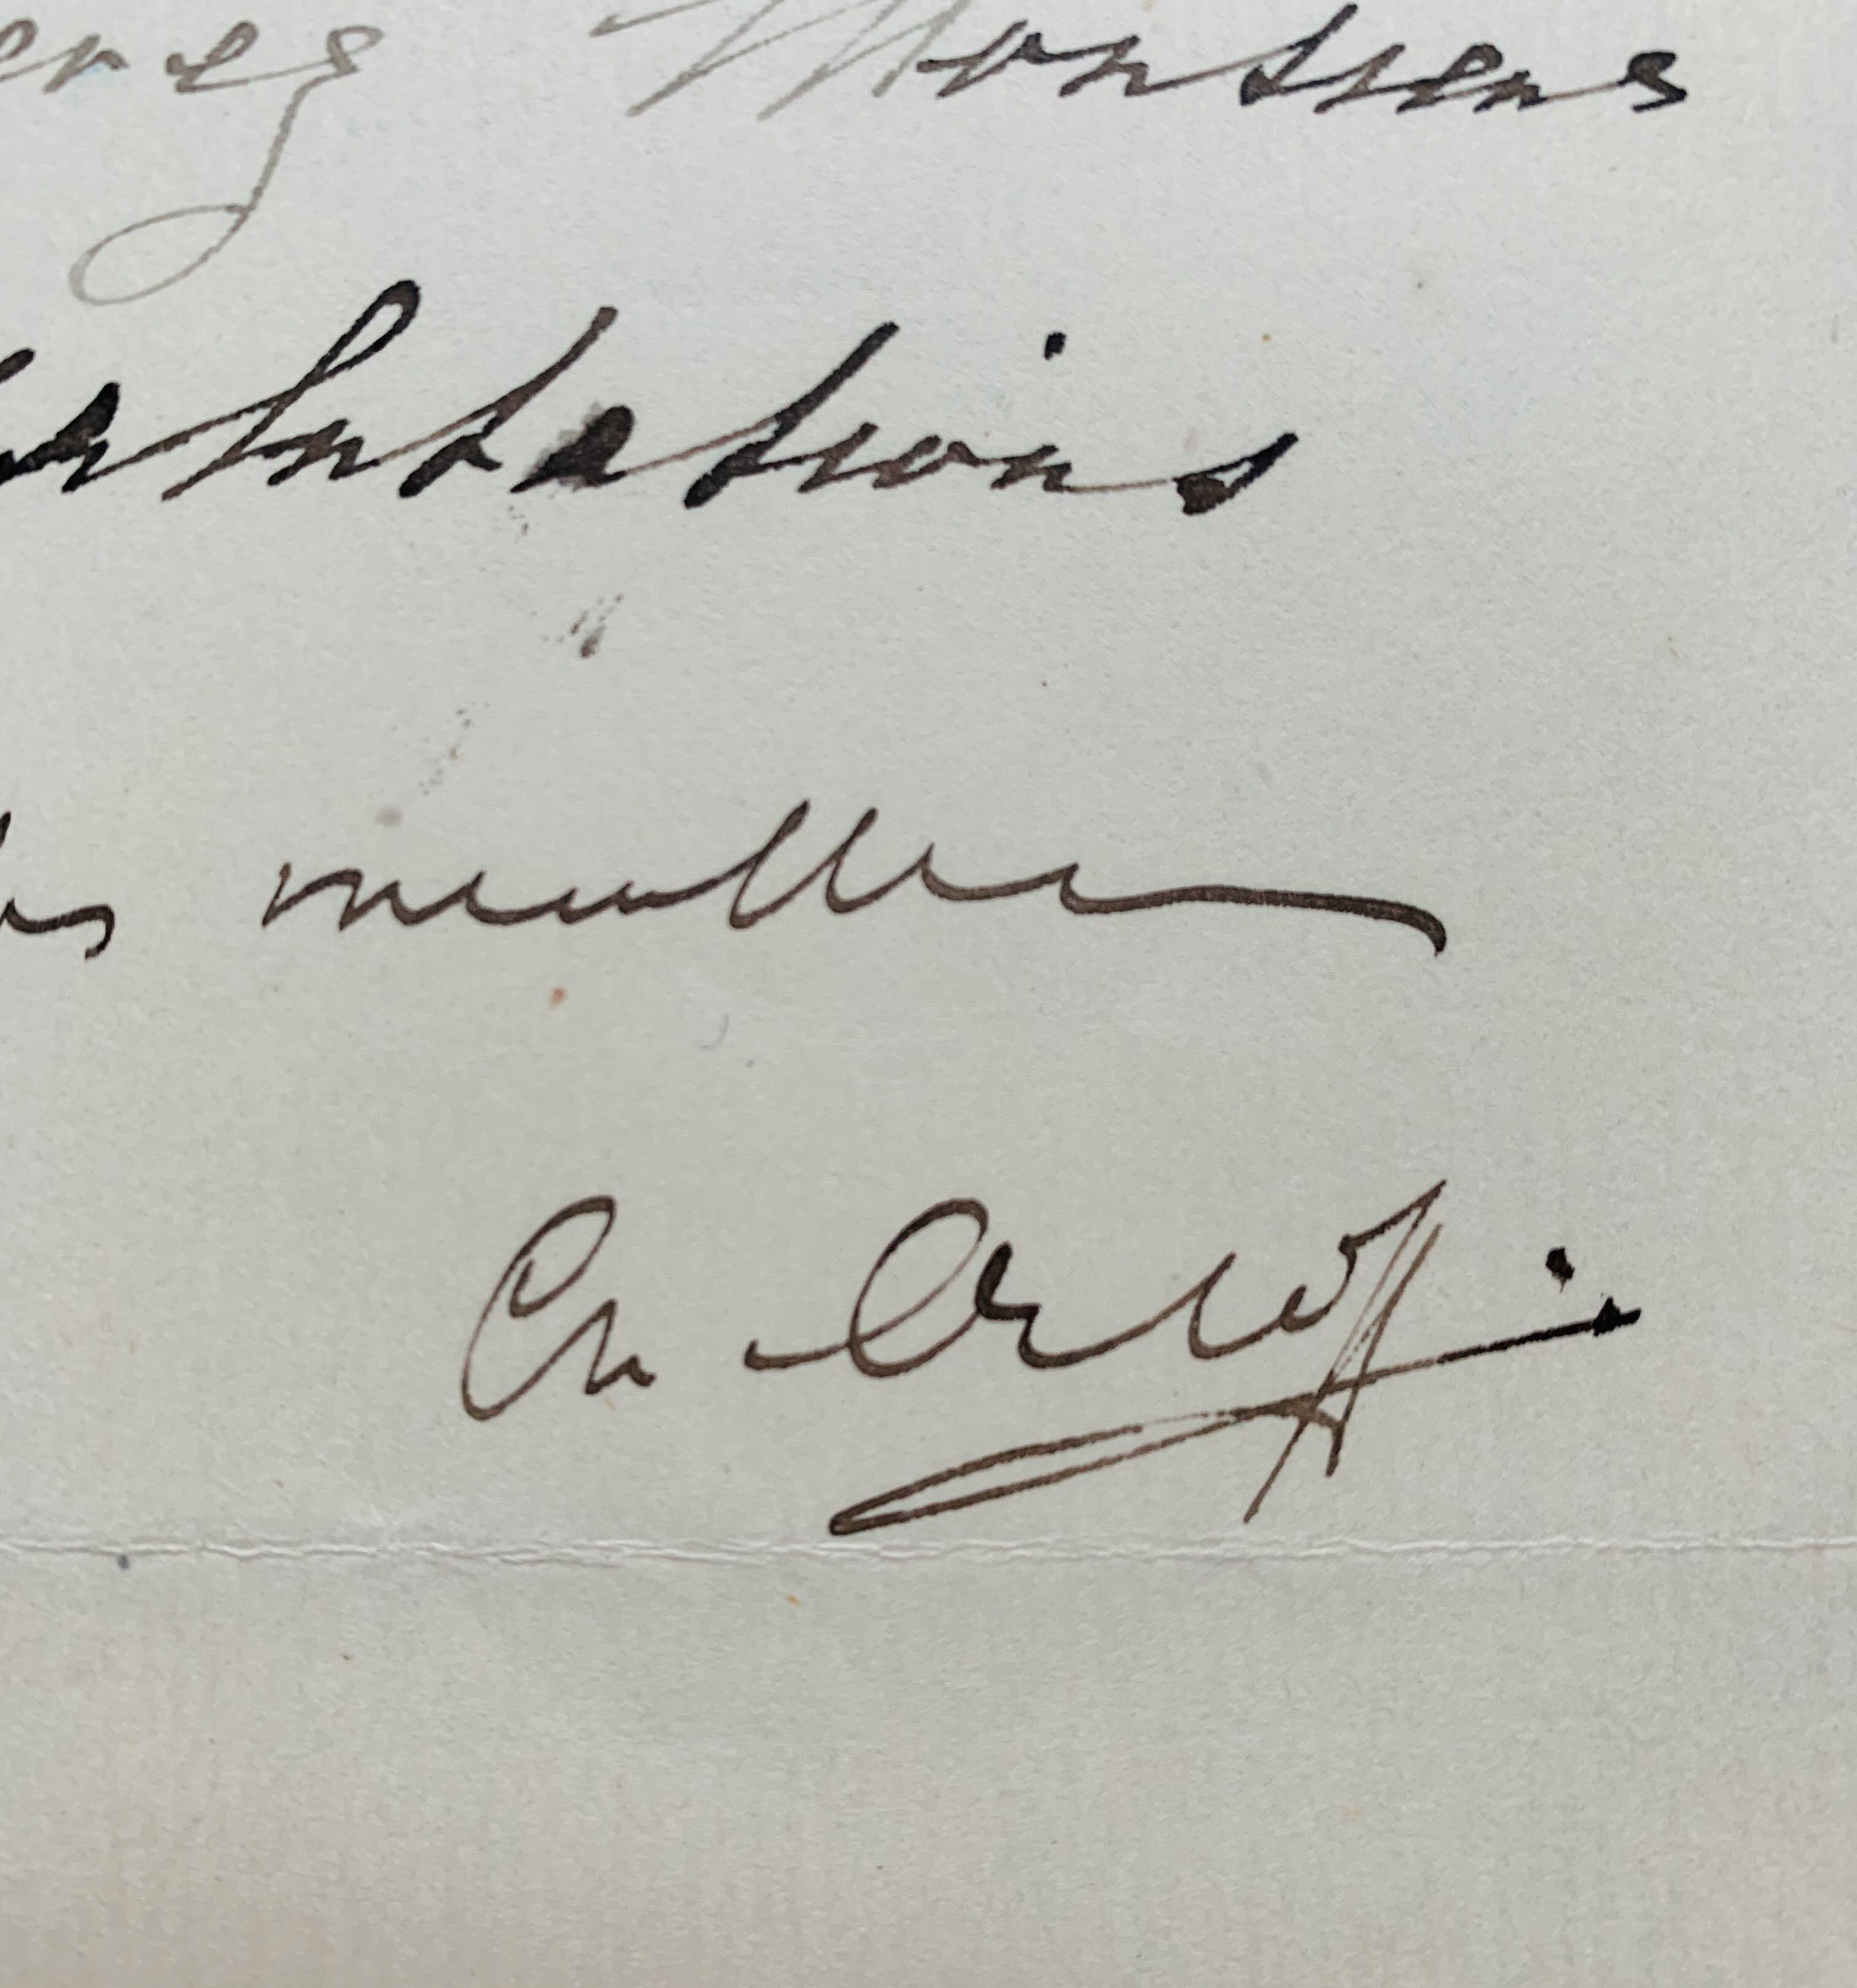 erez Monsieur
salutations
les meilleures
Ch. Orloff